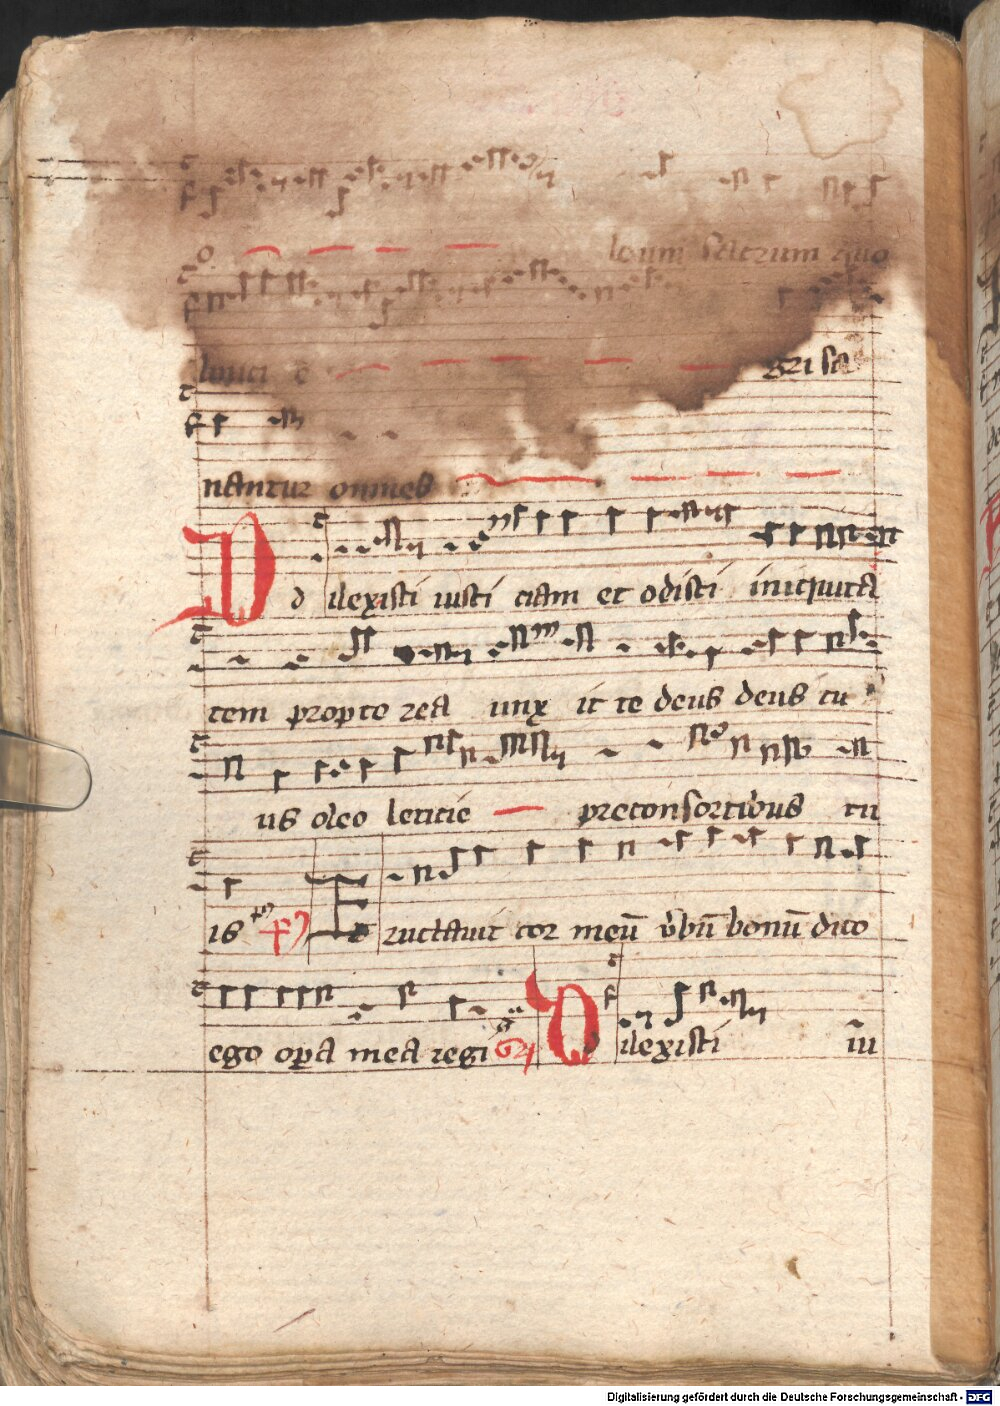 o loum sacrum quo
gri sa
nantur omnes
D d ilexisti iusti ciam et odisti iniquita
tem propto rea unx it te deus deus tu
us oleo leticie preconsortibus tu
is Eructauit cor meū v̓bū bonū dico
ego opa mea regi Dilexisti iu
Digitalisierung gefördert durch die Deutsche Forschungsgemeinschaft - DFG